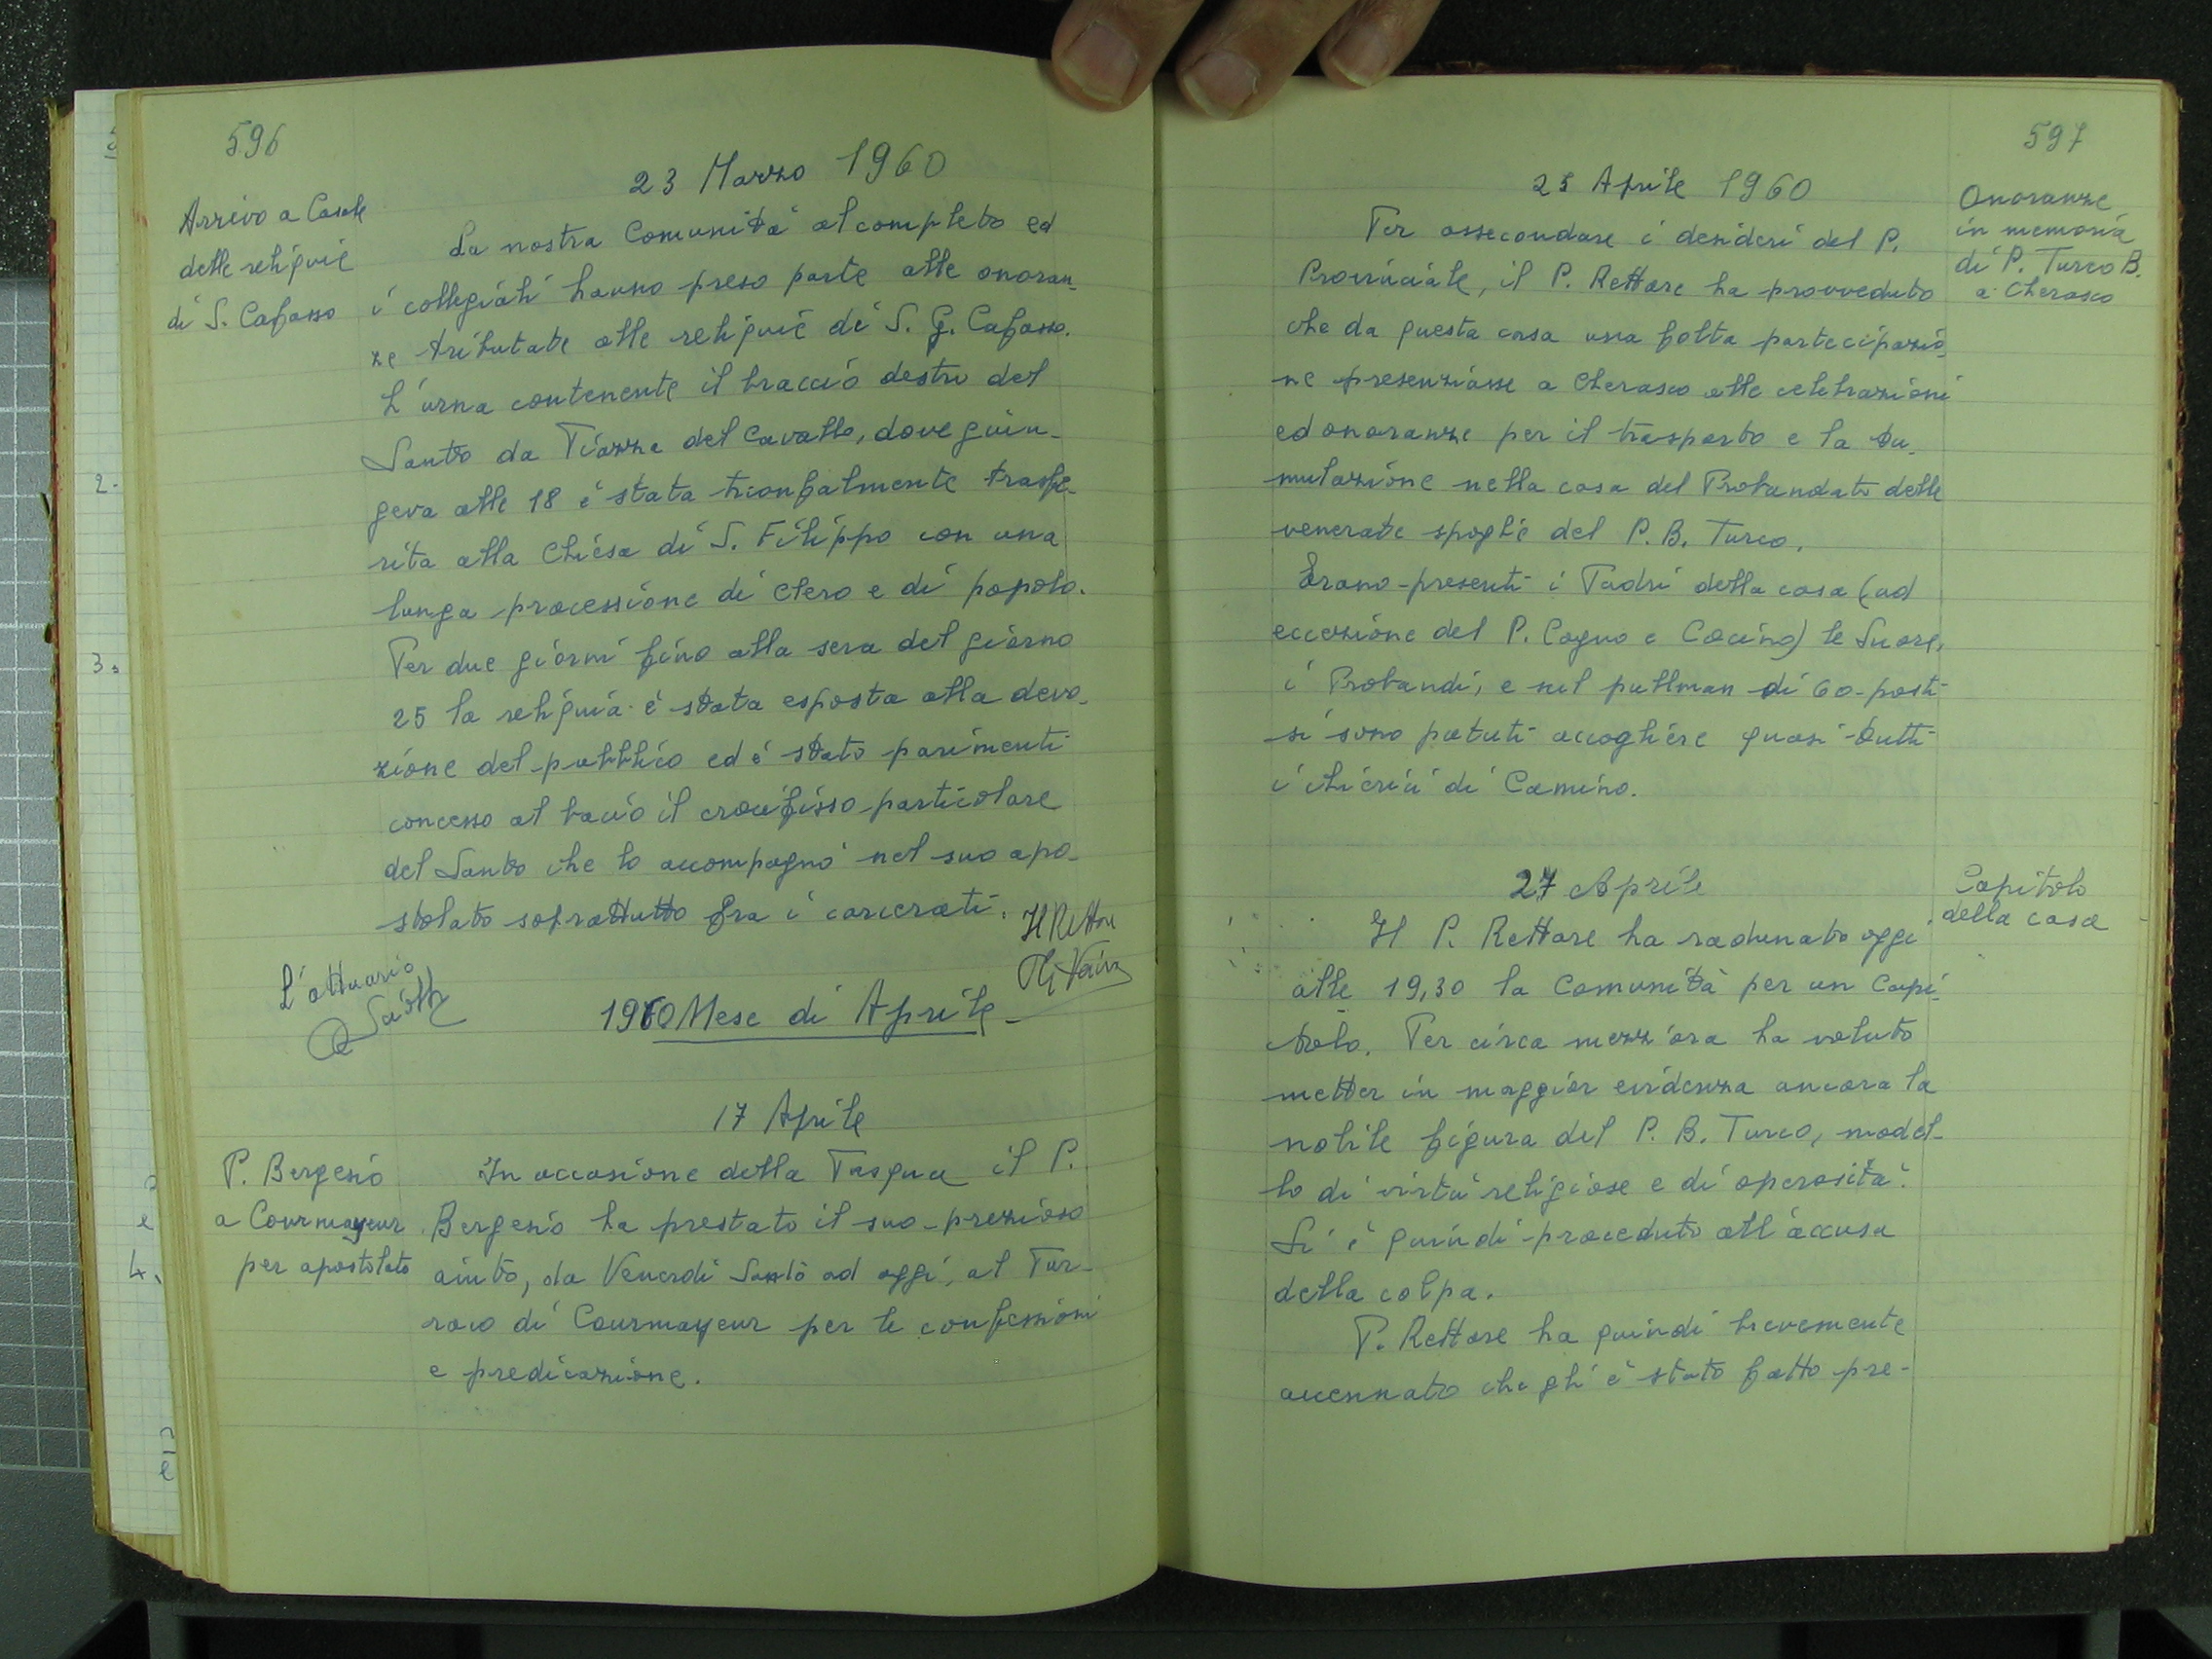 596
23 Marzo 1960
Arrivo a Casale
delle reliquie
di S. Cafasso
La nostra Comunità al completo ed
i collegiali hanno preso parte alle onoran-
ze tributate alle reliquie di S. G. Cafasso.
L'urna contenente il braccio destro del
Santo da Piazza del Cavallo, dove giun-
geva alle 18 è stata trionfalmente trasfe-
rita alla Chiesa di S. Filippo con una
lunga processione di clero e di popolo.
Per due giorni fino alla sera del giorno
25 la reliquia è stata esposta alla devo-
zione del pubblico ed è stato parimenti
concesso al bacio il crocifisso particolare
del Santo che lo accompagnò nel suo apo-
stolato soprattutto fra i carcerati.
Il Rettore
L'attuario
1960 Mese di Aprile
17 Aprile
P. Bergesio
a Courmayeur
per apostolato
In occasione della Pasqua il P.
Bergesio ha prestato il suo prezioso
aiuto, da Venerdì Santo ad oggi, al Par-
roco di Courmayeur per le confessioni
e predicazione.
597
25 Aprile 1960
Onoranze
in memoria
di P. Turco B.
a Cherasco
Per assecondare i desideri del P.
Provinciale, il P. Rettore ha provveduto
che da questa casa una folta partecipazio-
ne presenziasse a Cherasco alle celebrazioni
ed onoranze per il trasporto e la tu-
mulazione nella casa del Probandato delle
venerate spoglie del P. B. Turco.
Erano presenti i Padri della casa (ad
eccezione del P. Cogno e Cocino) le Suore,
i Probandi, e sul pullman di 60 posti
si sono potuti accogliere quasi tutti
i chierici di Camino.
27 Aprile
Capitolo
della casa
Il P. Rettore ha radunato oggi
alle 19,30 la Comunità per un Capi-
tolo. Per circa mezz'ora ha voluto
metter in maggior evidenza ancora la
nobile figura del P. B. Turco, model-
lo di virtù religiose e di operosità.
Si è quindi proceduto all'accusa
della colpa.
P. Rettore ha quindi brevemente
accennato che gli è stato fatto pre-
2.
3.
4.